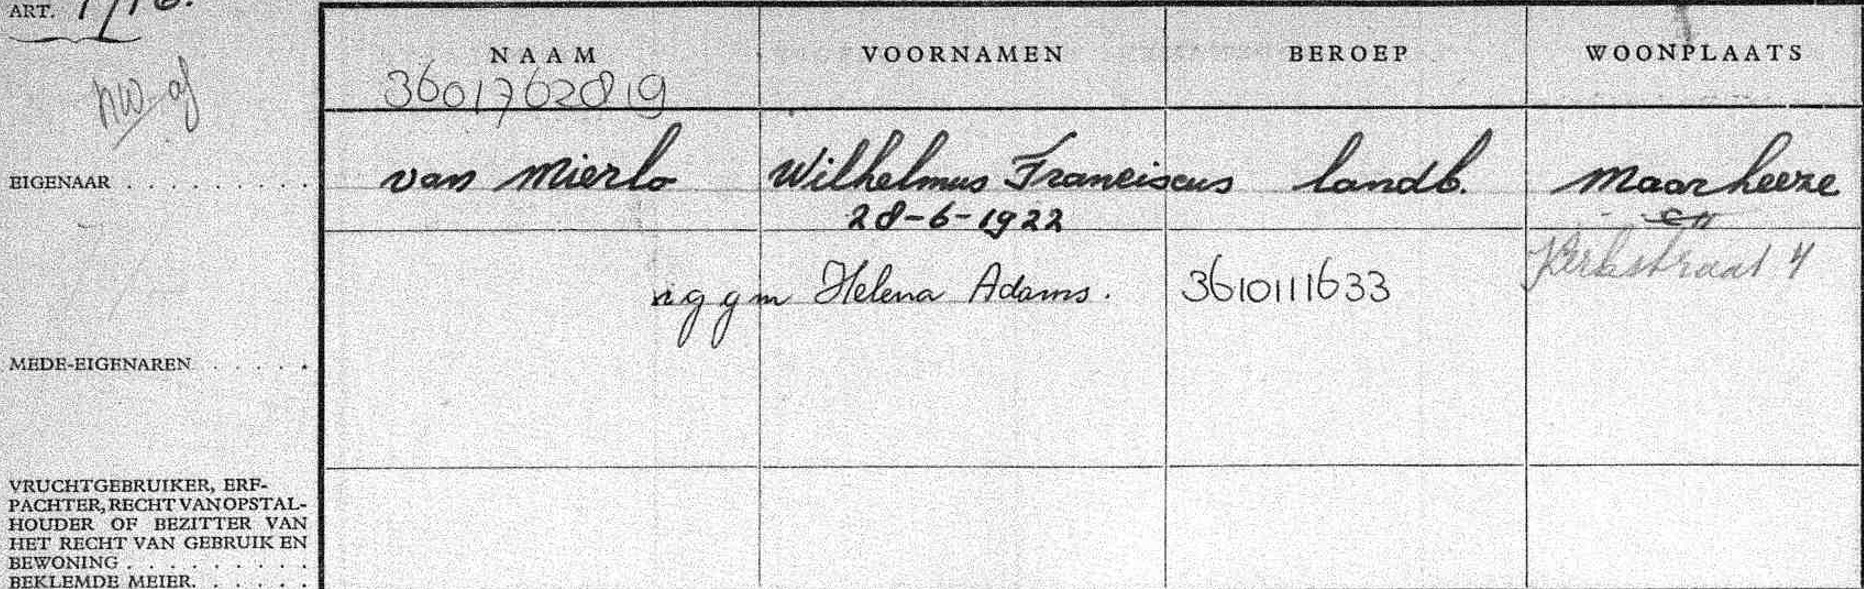 ART.
NAAM VOORNAMEN BEROEP WOONPLAATS
3601762819
nw af
EIGENAAR . . . . . . . . . van Mierlo Wilhelmus Franciscus landb. Maarheeze
28-6-1922
Kerkstraat 4
n g g m Helena Adams. 3610111633
MEDE-EIGENAREN . . . . .
VRUCHTGEBRUIKER, ERF-
PACHTER, RECHT VAN OPSTAL-
HOUDER OF BEZITTER VAN
HET RECHT VAN GEBRUIK EN
BEWONING . . . . . . . . .
BEKLEMDE MEIER. . . . . .